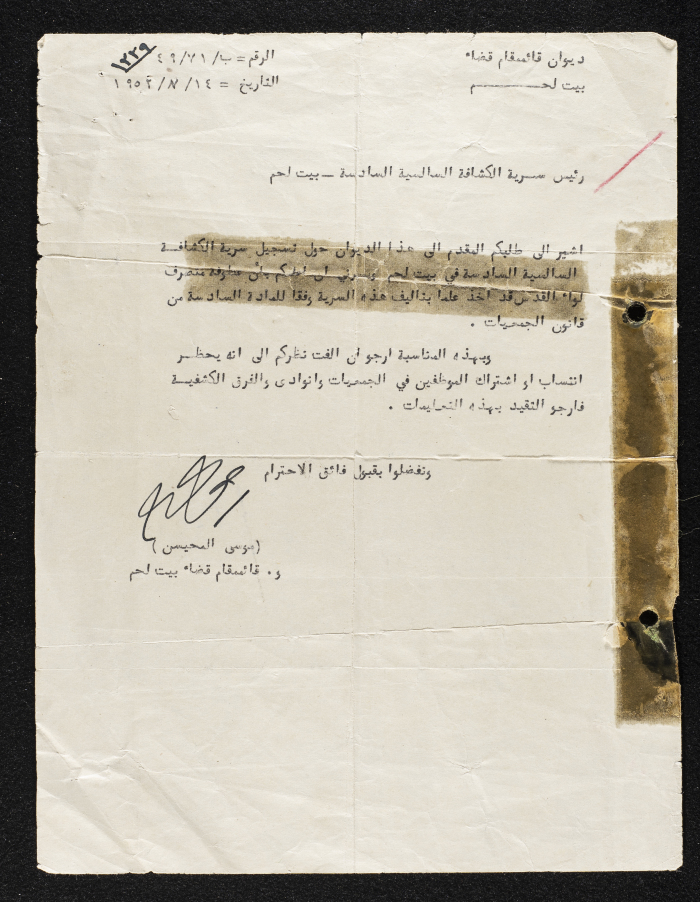 ديوان قائممقام قضاء
بيت لحـــــــم
الرقم = ب/٤٩/٧١
١٢٣٩
التاريخ = ١٩٥٢/٨/١٤
رئيس سرية الكشافة السالسية السادسة ــ بيت لحم
اشير الى طلبكم المقدم الى هذا الديوان حول تسجيل سرية الكشافة
السالسية السادسة في بيت لحم ان اعلمكم بأن عطوفة متصرف
لواء القدس قد اخذ علما بتاليف هذه السرية وفقا للمادة السادسة من
قانون الجمعيات .
وبهذه المناسبة ارجو ان الفت نظركم الى انه يحظر
انتساب او اشتراك الموظفين في الجمعيات وانوادى والفرق الكشفية
فارجو التقيد بهذه التعليمات .
وتفضلوا بقبول فائق الاحترام
(موسى المحيسن)
و. قائممقام قضاء بيت لحم